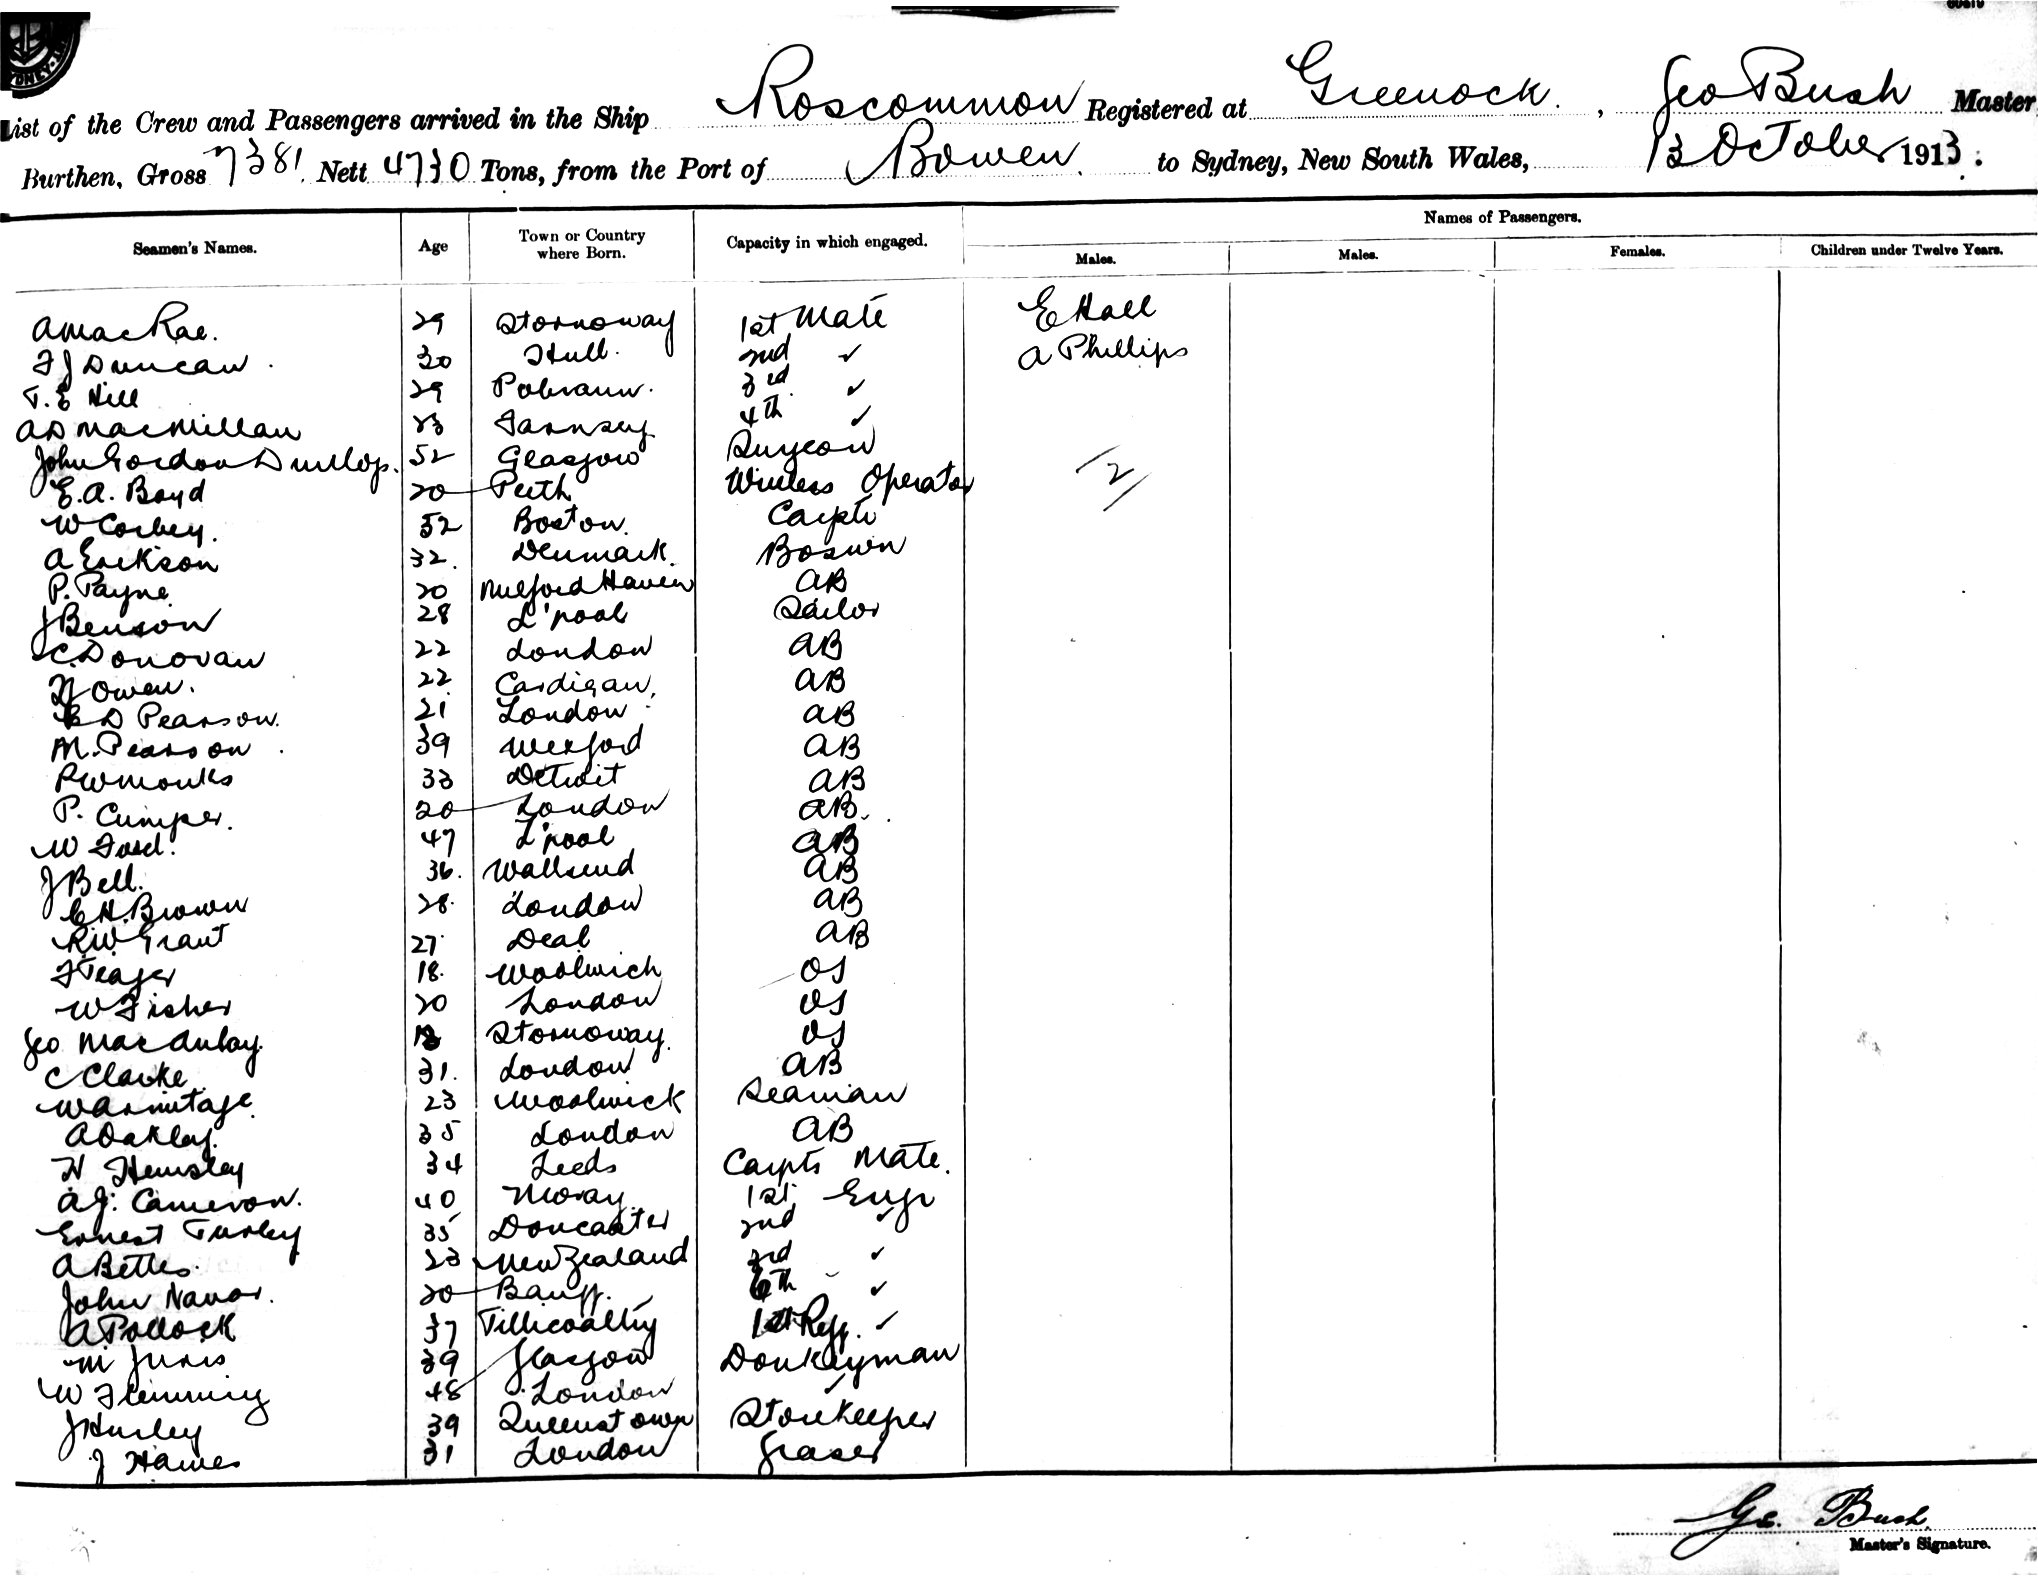 List of the Crew and Passengers arrived in the Ship Roscommon Registered at Greenock. , Geo Bush Master
Burthen, Gross 7381 Nett 4730 Tons, from the Port of Bowen. to Sydney, New South Wales, 13 October 1913.
Names of Passengers.
Seamen's Names. Age Town or Country where Born. Capacity in which engaged. Males. Males. Females. Children under Twelve Years.
A MacRae. 29 Stornoway 1st Mate E Hall
F J Duncan. 30 Hull. 2nd ✓ A Phillips
T. E Hill 29 3rd ✓
A D MacMillan 23 4th ✓
John Gordon Dunlop. 52 Glasgow Surgeon
E. A. Boyd 20 Perth Wireless Operator 2
W Corbey. 52 Boston. Carptr
A Erikson 32. Denmark. Boswn
P. Payne 20 Milford Haven AB
J Benson 28 L'pool Sailor
C. Donovan 22 London AB
Owen. 22 Cardigan. AB
D Pearson. 21 London AB
M. Pearson. 39 Wexford AB
P W Monks 33 Detroit AB
P. Cumper. 20 London AB.
W Ford. 47 L'pool AB
J Bell. 36. Wallsend AB
C H. Brown 28. London AB
R. W. Grant 27 Deal AB
F Teager 18. Woolwich OS
W Fisher 20 London OS
Geo MacAulay. 18 Stornoway. OS
C Clarke 31. London AB
W Armitage. 23 Woolwick Seaman
A Oakley. 35 London AB
H Hemsley 34 Leeds Carpts Mate.
A. J. Cameron. 40 Moray. 1st Engr
Ernest Turley 35 Doncaster 2nd ✓
A Bettes. 23 New Zealand 3rd ✓
John Navar. 20 Banff. 6th ✓
A Pollock 37 1st Refg. ✓
M 39 Glasgow Donkeyman
W Flemming 48 London ✓
J Hurley 39 Queenstown Storekeeper
J Hawes 31 London Greaser
Geo. Bush.
Master's Signature.